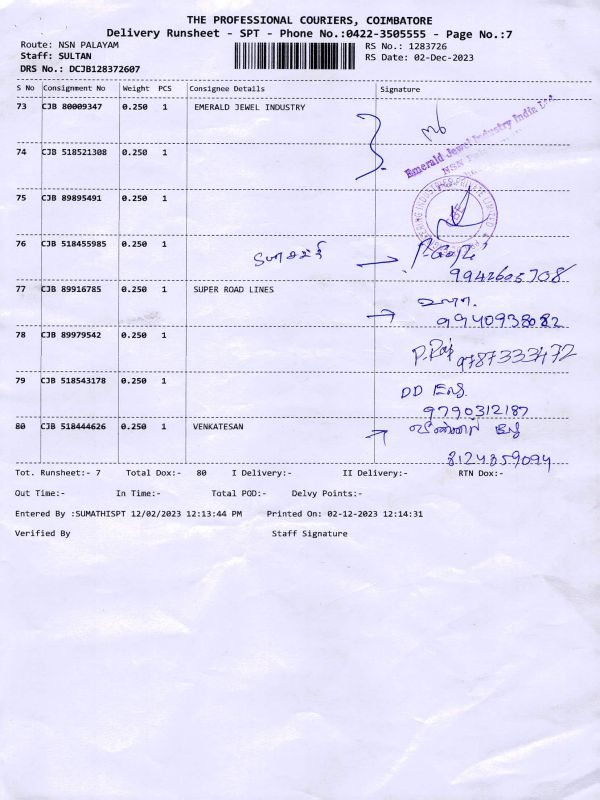 THE PROFESSIONAL COURIERS, COIMBATORE
Delivery Runsheet - SPT - Phone No.:0422-3505555 - Page No.:7
Route: NSN PALAYAM RS No.: 1283726
Staff: SULTAN RS Date: 02-Dec-2023
DRS No.: DCJB128372607
S No Consignment No Weight PCS Consignee Details Signature
73 CJB 80009347 0.250 1 EMERALD JEWEL INDUSTRY
Emerald Jewel Industry India Ltd
NSN
74 CJB 518521308 0.250 1
75 CJB 89895491 0.250 1
76 CJB 518455985 0.250 1
9942605708
77 CJB 89916785 0.250 1 SUPER ROAD LINES
9940938082
78 CJB 89979542 0.250 1
P.Raj 9787333472
79 CJB 518543178 0.250 1
DD
9790312187
80 CJB 518444626 0.250 1 VENKATESAN
8124859094
Tot. Runsheet:- 7 Total Dox:- 80 I Delivery:- II Delivery:- RTN Dox:-
Out Time:- In Time:- Total POD:- Delvy Points:-
Entered By :SUMATHISPT 12/02/2023 12:13:44 PM Printed On: 02-12-2023 12:14:31
Verified By Staff Signature